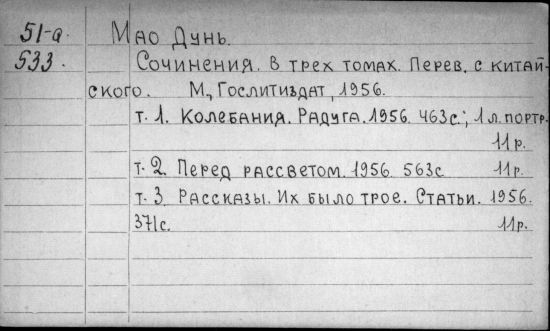 51-а. Мао Дунь.
533. Сочинения. В трех томах. Перев. с китай-
ского. М., Гослитиздат, 1956.
т. 1. Колебания. Радуга. 1956. 463с.; 1 л. портр.
11р.
т. 2. Перед рассветом. 1956. 563с 11р.
т. 3. Рассказы. Их было трое. Статьи. 1956.
371с. 11р.